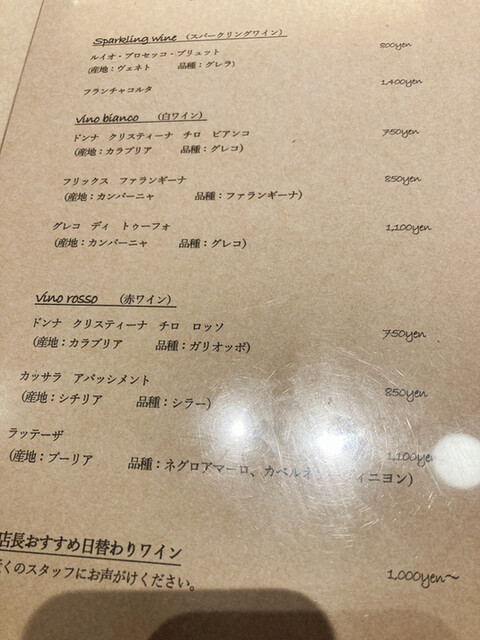 Sparkling wine （スパークリングワイン） 800yen
ルイオ・プロセッコ・ブリュット
(産地：ヴェネト　品種：グレラ)
フランチャコルタ 1,400yen
vino bianco （白ワイン）
ドンナ　クリスティーナ　チロ　ビアンコ 750yen
(産地：カラブリア　品種：グレコ)
フリックス　ファランギーナ 850yen
(産地：カンパーニャ　品種：ファランギーナ)
グレコ　ディ　トゥーフォ 1,100yen
(産地：カンパーニャ　品種：グレコ)
vino rosso （赤ワイン）
ドンナ　クリスティーナ　チロ　ロッソ 750yen
(産地：カラブリア　品種：ガリオッポ)
カッサラ　アパッシメント 850yen
(産地：シチリア　品種：シラー)
ラッテーザ 1,100yen
(産地：プーリア　品種：ネグロアマーロ、カベルネ ィニヨン)
店長おすすめ日替わりワイン
くのスタッフにお声がけください。 1,000yen～